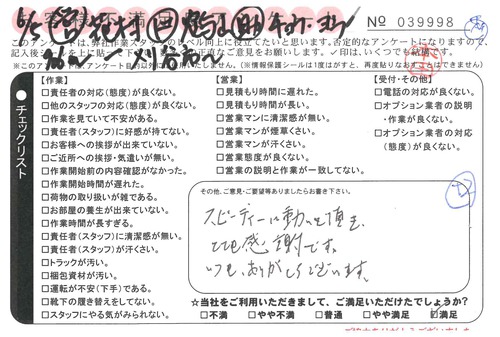 No 039998
このアンケートは、弊社作業スタッフのレベル向上に役立てたいと思います。否定的なアンケートになりますので、
☆印は、いくつでも結構です。
【作業】
□責任者の対応(態度)が良くない。
□他のスタッフの対応(態度)が良くない。
□作業を見ていて不安がある。
□責任者(スタッフ)に好感が持てない。
□お客様への挨拶が出来ていない。
□ご近所への挨拶・気遣いが無い。
□作業開始前の内容確認がなかった。
□作業開始時間が遅れた。
□荷物の取り扱いが雑である。
□お部屋の養生が出来ていない。
□作業時間が長すぎる。
□責任者(スタッフ)に清潔感が無い。
□責任者(スタッフ)が汗くさい。
□トラックが汚い。
□梱包資材が汚い。
□運転が不安(下手)である。
□靴下の履き替えをしてない。
□スタッフにやる気がみられない。
【営業】
□見積もり時間に遅れた。
□見積もり時間が長い。
□営業マンに清潔感が無い。
□営業マンが煙草くさい。
□営業マンが汗くさい。
□営業態度が良くない。
□営業の説明と作業が一致してない。
【受付・その他】
□電話の対応が良くない。
□オプション業者の説明
・作業が良くない。
□オプション業者の対応
(態度)が良くない。
チェックリスト
その他、ご意見・ご要望等ありましたらお書き下さい。
スピーディーに動いて頂き
とても感謝です。
いつも、ありがとうございます。
☆当社をご利用いただきまして、ご満足いただけたでしょうか?
□不満 □やや不満 □普通 □やや満足 ☑満足